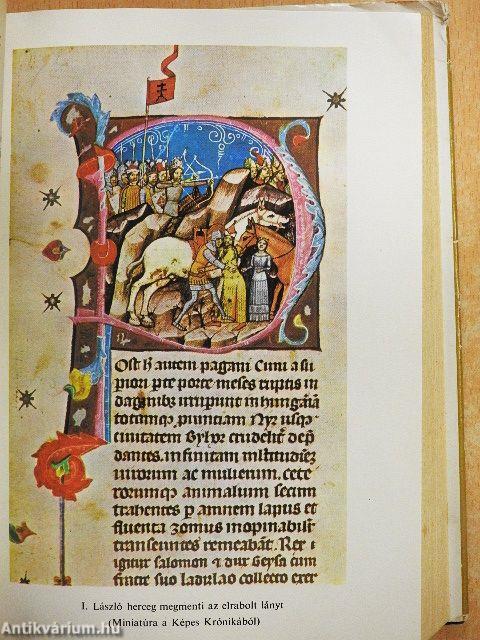 ost h autem pagani Cuni a su
piori pte porte meses ruptis in
dagınibz irruperunt in hungariā
totamqz punciam Nyr usqz
civitatem Byhor crudelit dep
dantes. infinitam multitudiez
virorum ac mulierum. Cete
rorumqz animalium secum
trahentes p amnem lapus et
fluenta zomus inopinabilit
transeuntes remeabāt. Rex
igitur salomon et dux Geysa cum
fratre suo Ladislao collecto exer
I. László herceg megmenti az elrabolt lányt
(Miniatúra a Képes Krónikából)
Antikvárium.hu